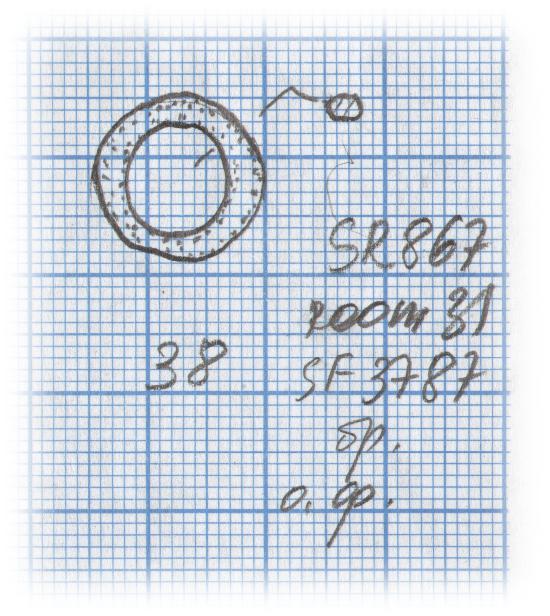 SR 867
room 31
38
SF 3787
бр.
о. ф.